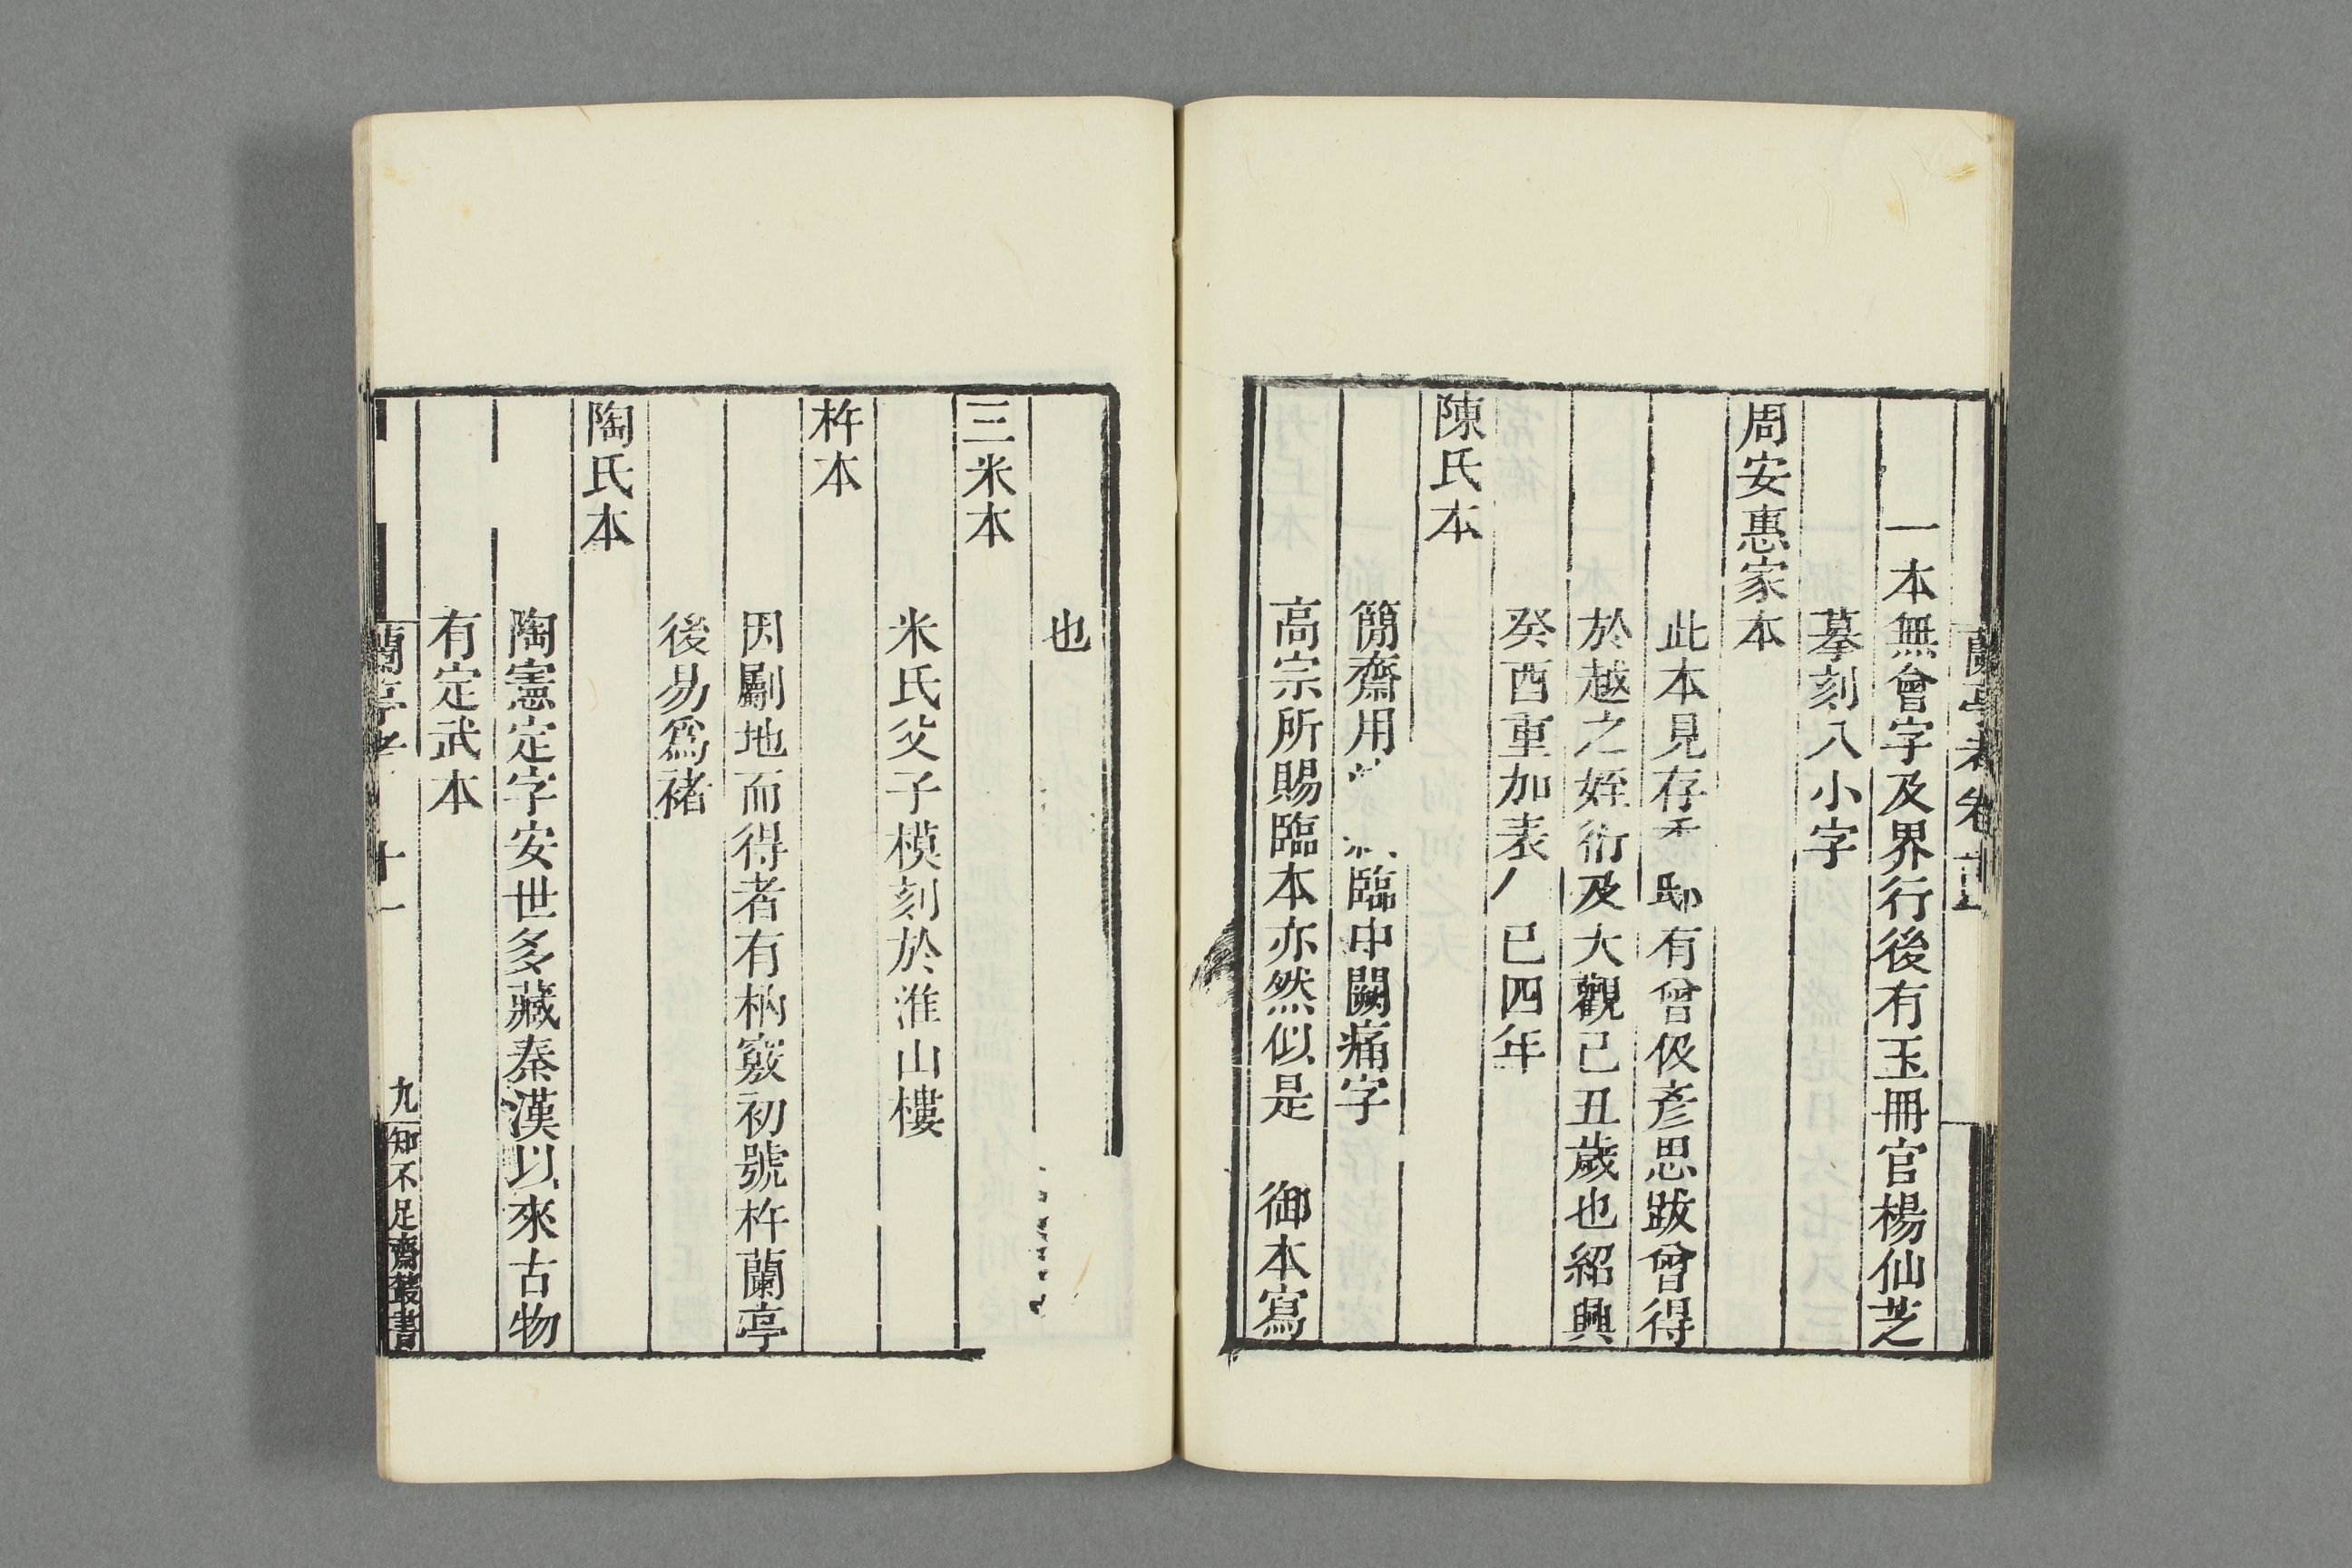 蘭亭考卷十一
一本無會字及界行後有玉冊官楊仙芝
摹刻八小字
周安惠家本
此本見存 邸有曾伋彥思跋曾得
於越之姪衍及大觀己丑歲也紹興
癸酉重加表 巳四年
陳氏本
簡齋用 臨中闕痛字
高宗所賜臨本亦然似是 御本寫
也
三米本
米氏父子模刻於淮山樓
杵本
因劚地而得者有杵竅初號杵蘭亭
後易爲褚
陶氏本
陶憲定字安世多藏秦漢以來古物
有定武本
蘭亭考 十一
九
知不足齋叢書